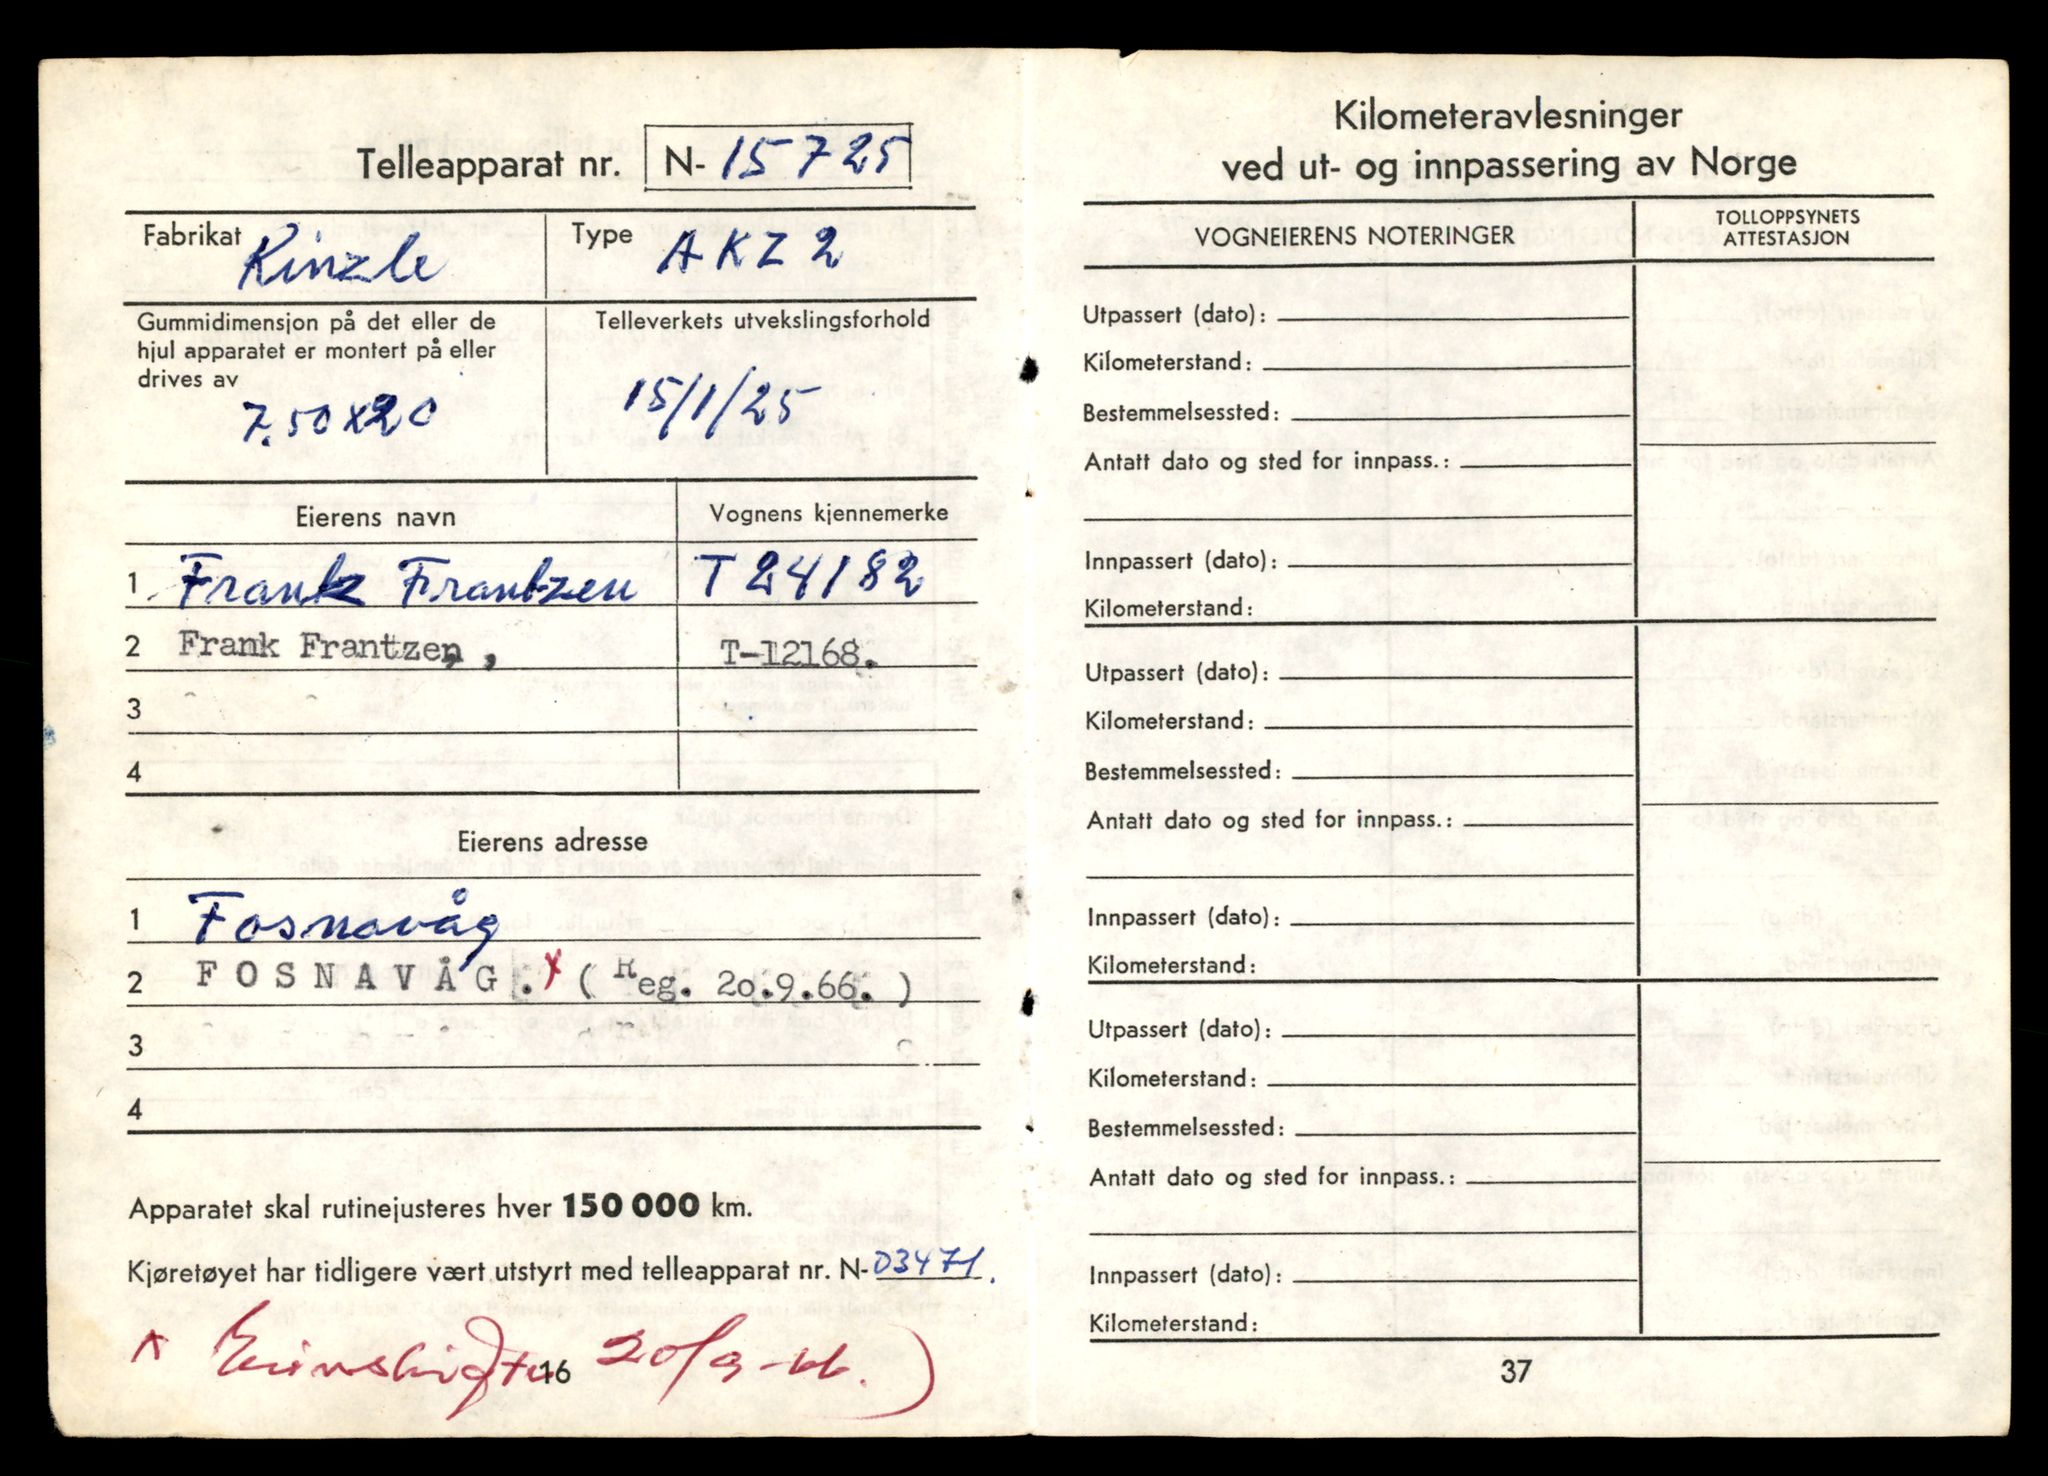 Telleapparat nr. N- 15725
Fabrikat Kinzle
Type AKZ 2
Gummidimensjon på det eller de
hjul apparatet er montert på eller
drives av
7.50 x 20
Telleverkets utvekslingsforhold
15/1/25
Eierens navn Vognens kjennemerke
1 Frank Frantzen T 24182
2 Frank Frantzen, T-12168.
3
4
Eierens adresse
1 Fosnavåg
2 FOSNAVÅG. x (Reg. 20.9.66.)
3
4
Apparatet skal rutinejusteres hver 150 000 km.
Kjøretøyet har tidligere vært utstyrt med telleapparat nr. N- 03471.
x 20/9-66.)
16
Kilometeravlesninger
ved ut- og innpassering av Norge
VOGNEIERENS NOTERINGER
TOLLOPPSYNETS
ATTESTASJON
Utpassert (dato):
Kilometerstand:
Bestemmelsessted:
Antatt dato og sted for innpass.:
Innpassert (dato):
Kilometerstand:
Utpassert (dato):
Kilometerstand:
Bestemmelsessted:
Antatt dato og sted for innpass.:
Innpassert (dato):
Kilometerstand:
Utpassert (dato):
Kilometerstand:
Bestemmelsessted:
Antatt dato og sted for innpass.:
Innpassert (dato):
Kilometerstand:
37